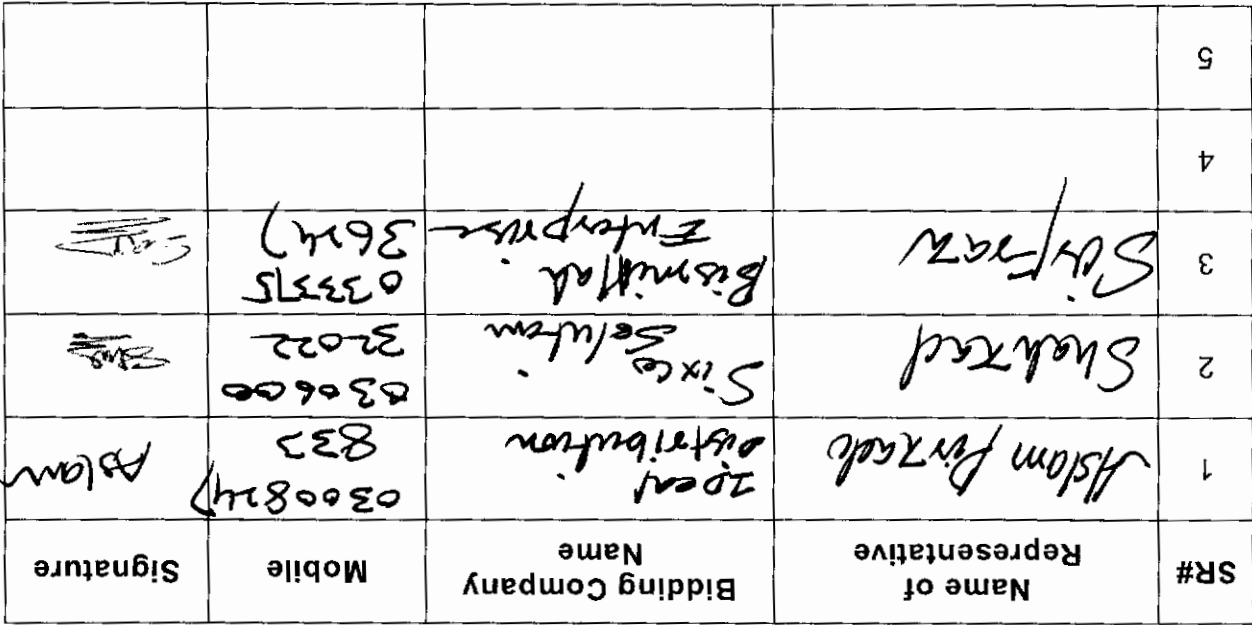 SR#
Name of
Representative
Bidding Company
Name
Mobile
Signature
1
Aslam Pirzada
Ideal
distribution
0300824
833
Aslam
2
Shahzad
Sixes
Solution
030600
32022
3
Sarfraz
Bismillah
Enterprise
033375
36247
4
5